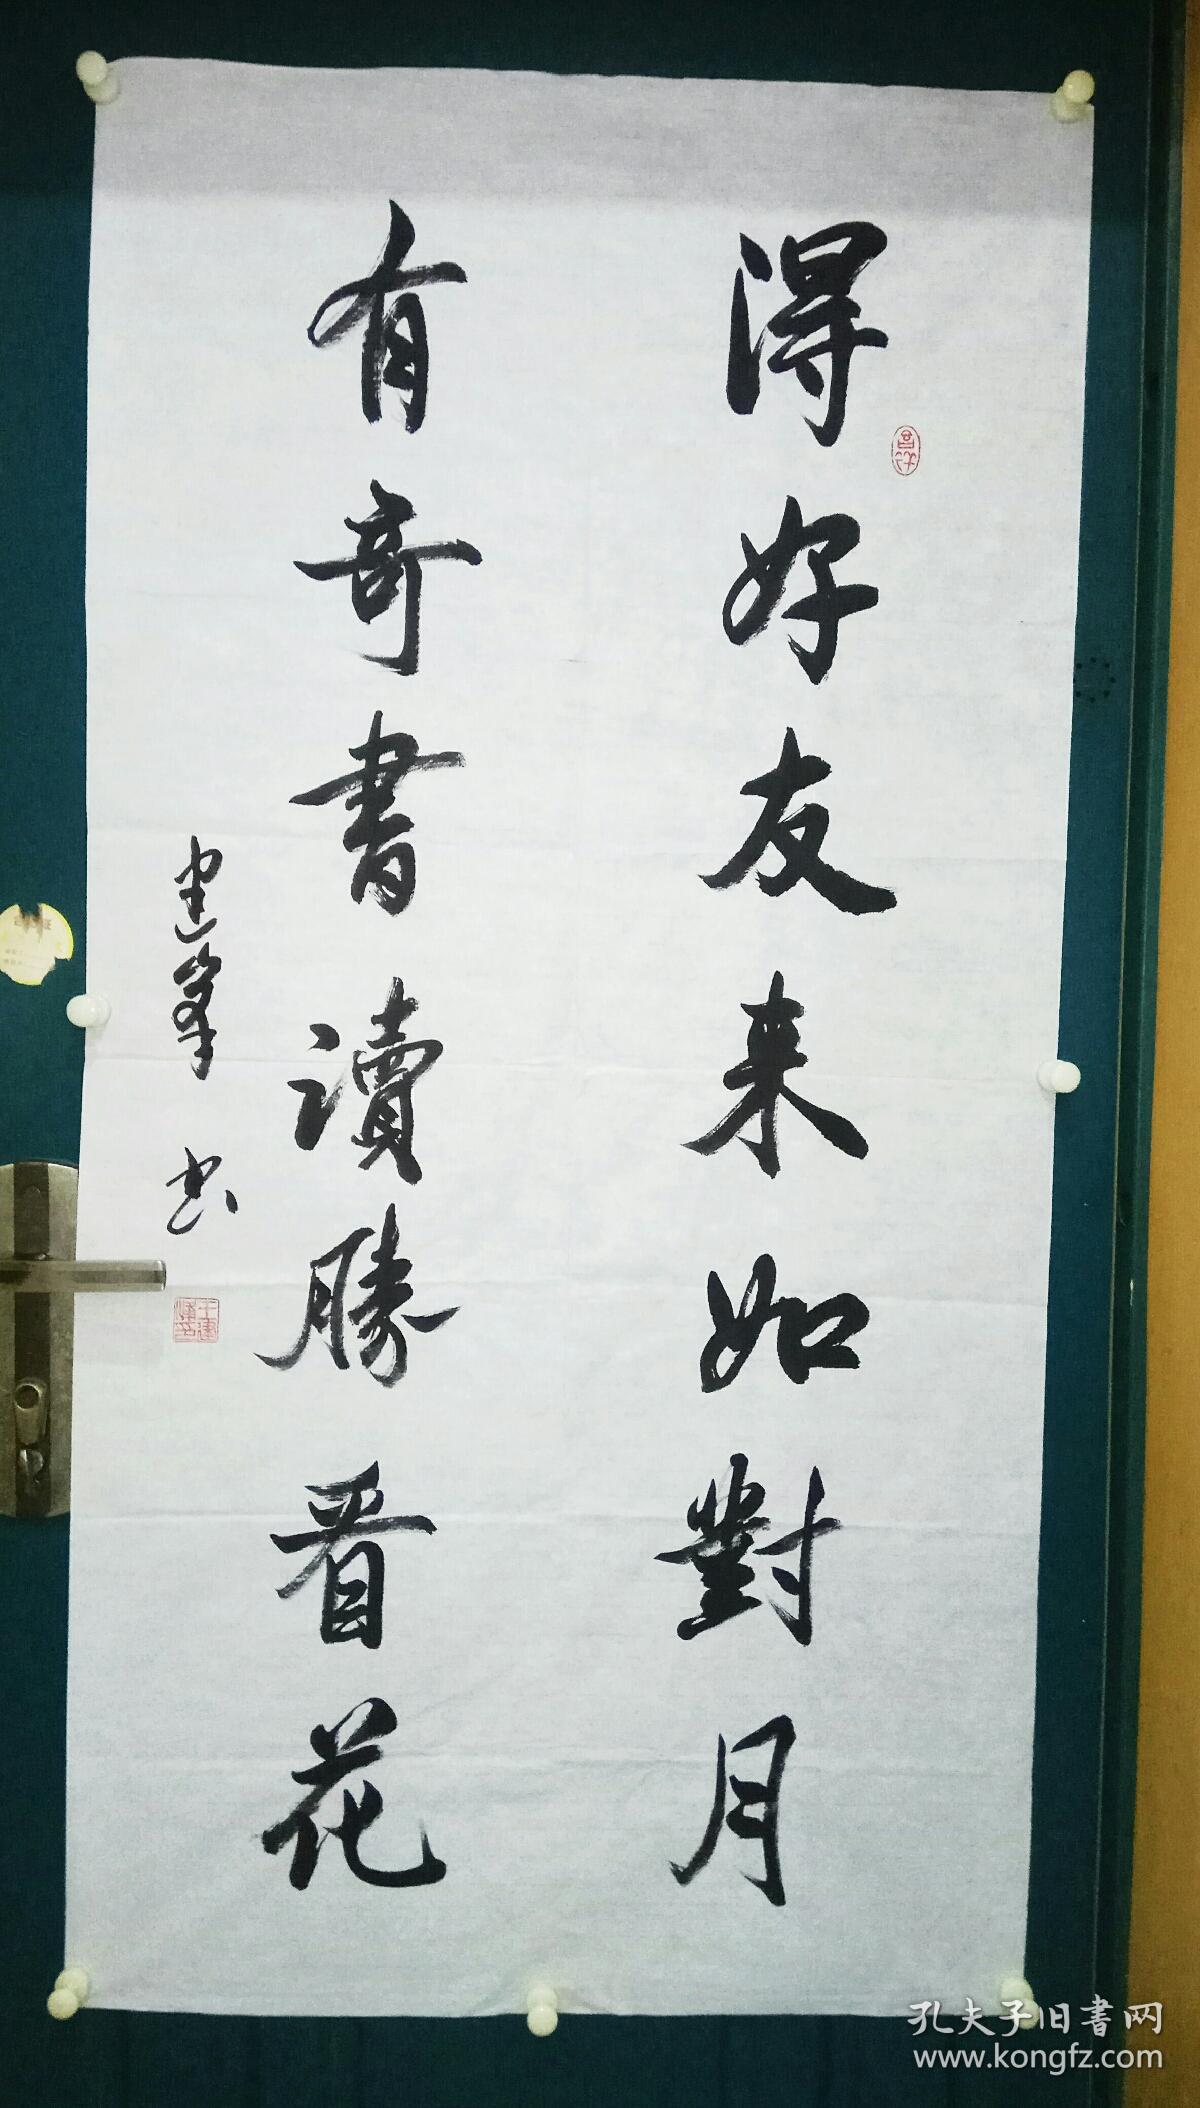 得好友来如對月
有奇書讀勝看花
建峯书
孔夫子旧書网
www.kongfz.com